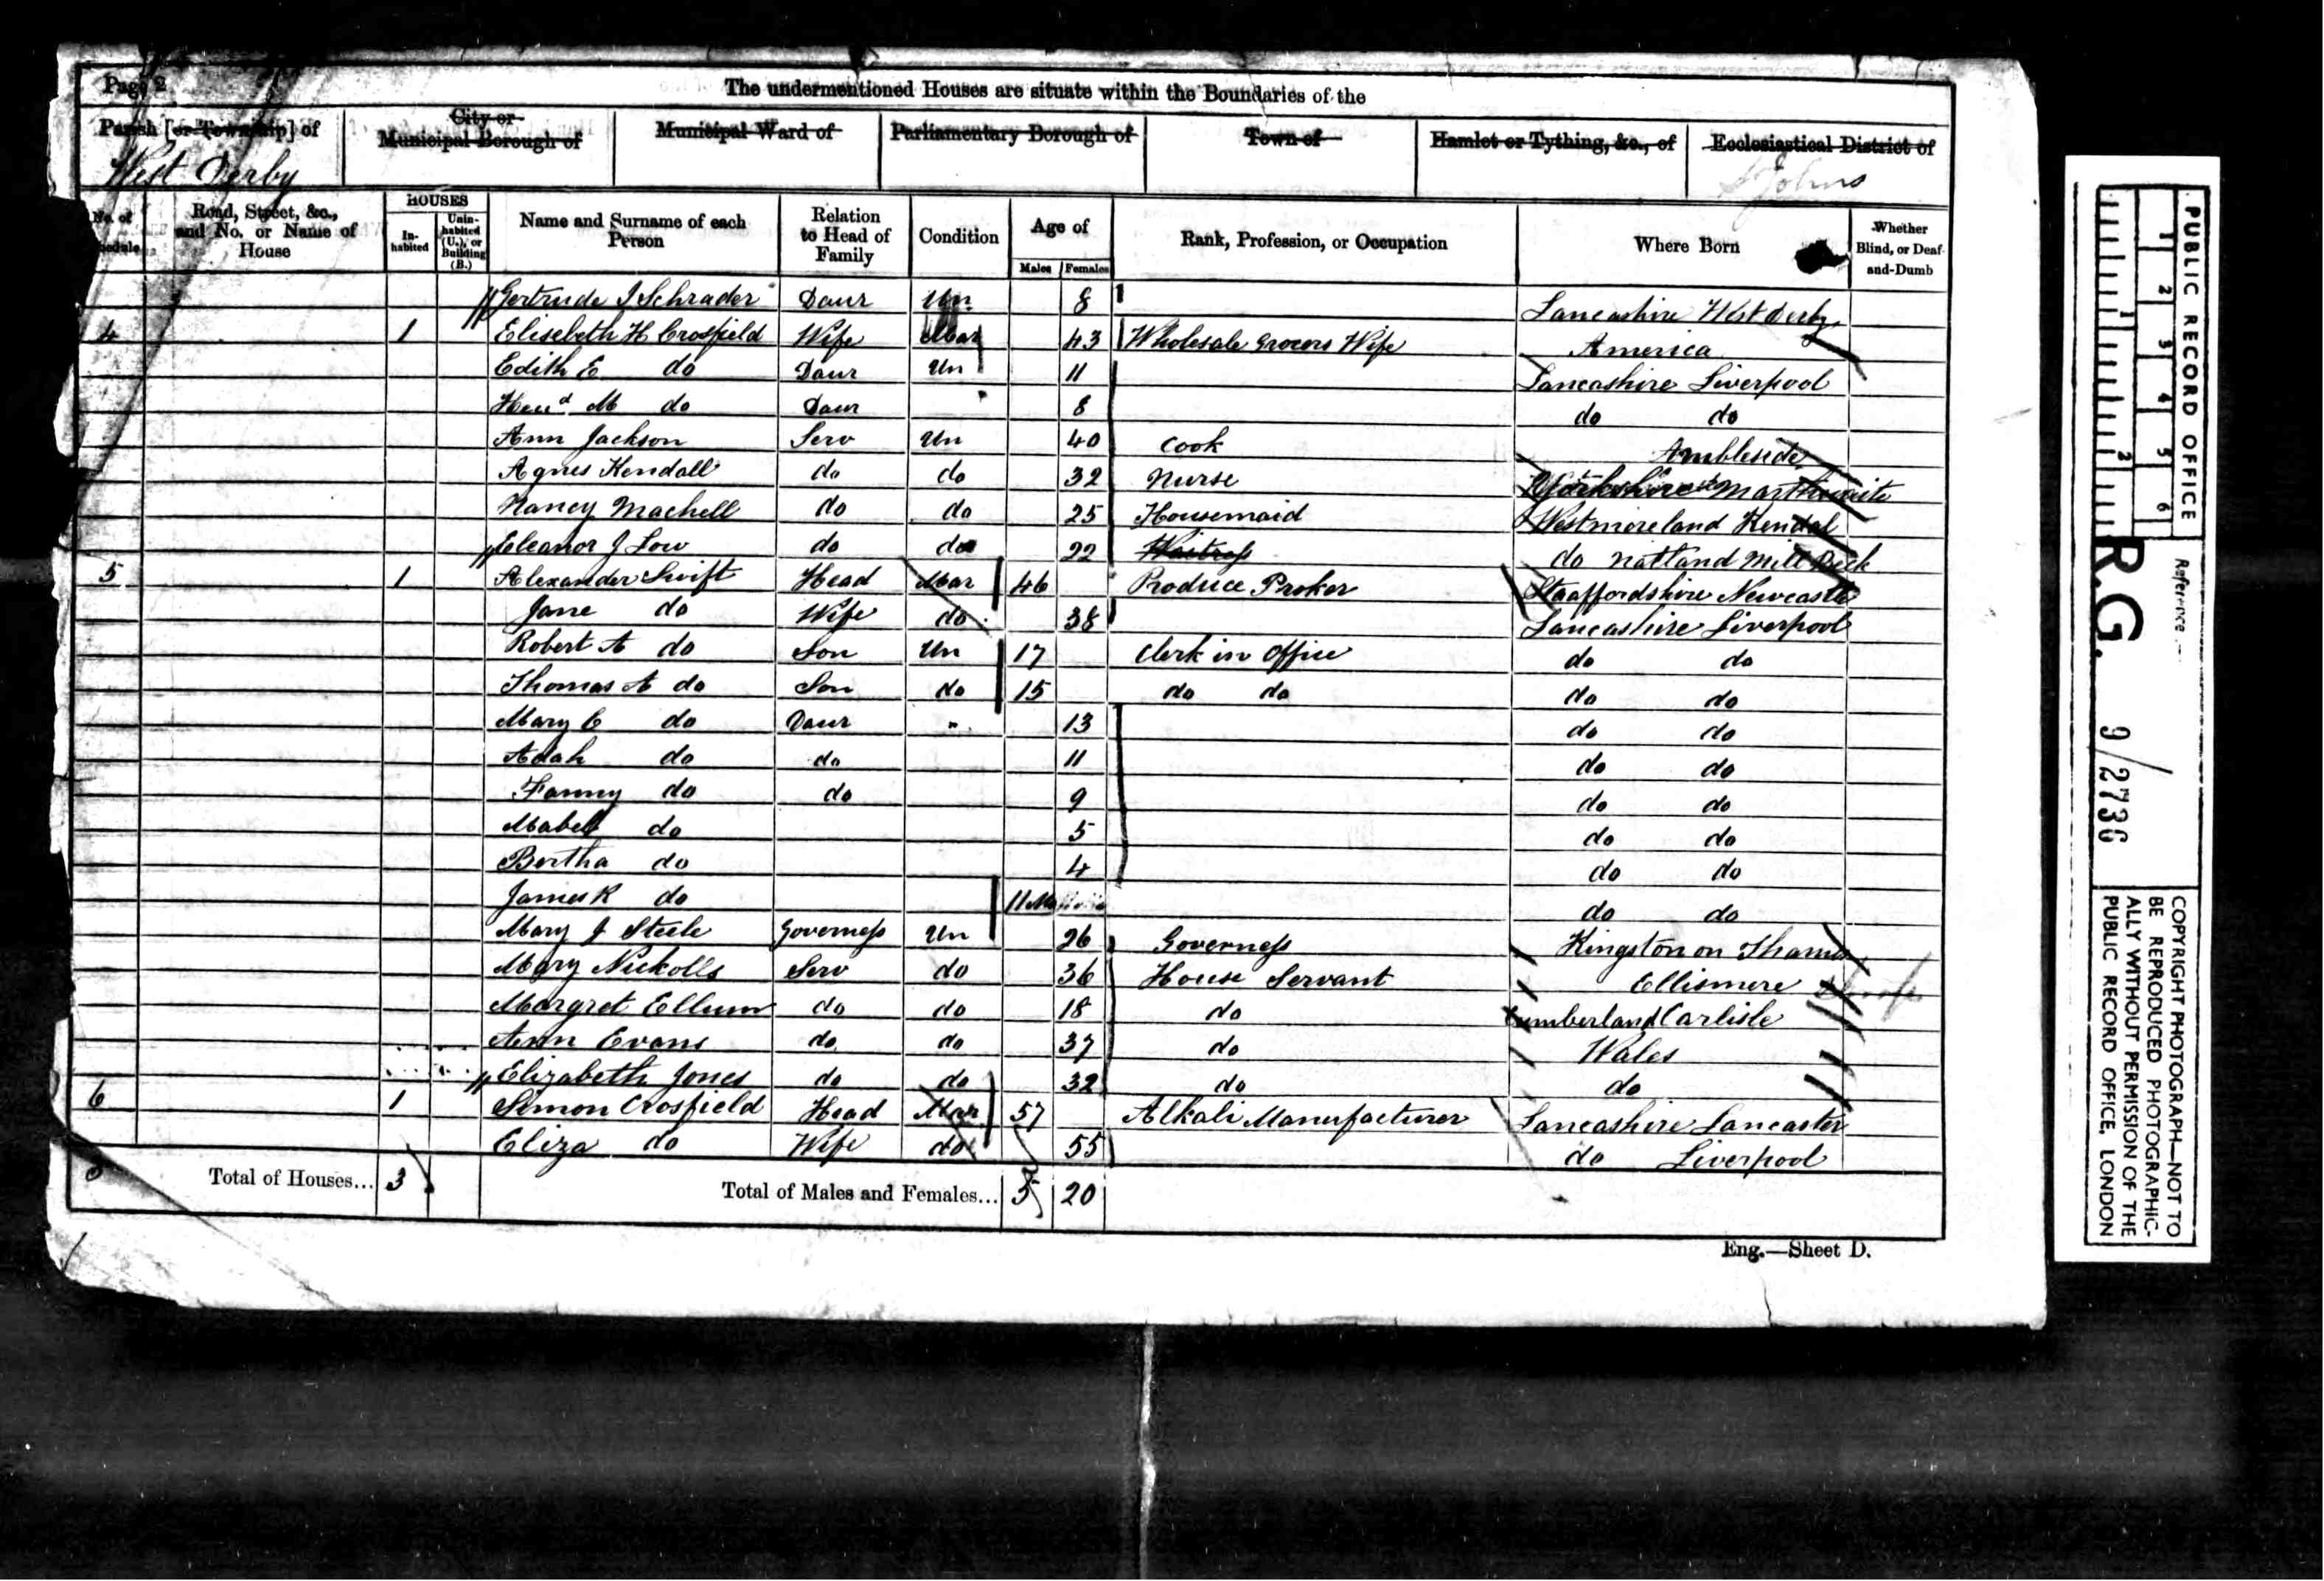 Page 2
The undermentioned Houses are situate within the Boundaries of the
Parish [or Township] of
City or
Municipal Borough of
Municipal Ward of
Parliamentary Borough of
Town of
Hamlet or Tything, &c., of
Ecclesiastical District of
West Derby
St Johns
No. of
Road, Street, &c., and No. or Name of House
HOUSES
In-habited
Unin-habited (U.), or Building (B.)
Name and Surname of each Person
Relation to Head of Family
Condition
Age of
Males
Females
Rank, Profession, or Occupation
Where Born
Whether Blind, or Deaf-and-Dumb
Gertrude J Schrader Daur Un 8 Lancashire West Derby
4 1 Elisebeth H Crosfield Wife Mar 43 Wholesale Grocers Wife America
Edith E do Daur Un 11 Lancashire Liverpool
M do Daur 8 do do
Ann Jackson Serv Un 40 Cook Ambleside
Agnes Kendall do do 32 Nurse Yorkshire
Nancy Machell do do 25 Housemaid Westmoreland Kendal
Eleanor J Low do do 22 Waitress do Natland Mill Beck
5 1 Alexander Swift Head Mar 46 Produce Broker Staaffordshire Newcastle
Jane do Wife do 38 Lancashire Liverpool
Robert A do Son Un 17 Clerk in Office do do
Thomas A do Son do 15 do do do do
Mary E do Daur " 13 do do
Adah do do 11 do do
Fanny do do 9 do do
Mabel do 5 do do
Bertha do 4 do do
James R do 11 Mo do do
Mary J Steele Governess Un 26 Governess Kingston on Thames
Mary Nickolls Serv do 36 House Servant Ellismere
Margret Ellum do do 18 do Cumberland Carlisle
Ann Evans do do 37 do Wales
Elizabeth Jones do do 32 do do
6 1 Simon Crosfield Head Mar 57 Alkali Manufacturer Lancashire Lancaster
Eliza do Wife do 55 do Liverpool
3 Total of Houses... 3 Total of Males and Females... 5 20
Eng.—Sheet D.
PUBLIC RECORD OFFICE
1 2 3 4 5 6
1 2
Reference:-
R.G. 9/2736
COPYRIGHT PHOTOGRAPH—NOT TO
BE REPRODUCED PHOTOGRAPHIC-
ALLY WITHOUT PERMISSION OF THE
PUBLIC RECORD OFFICE, LONDON